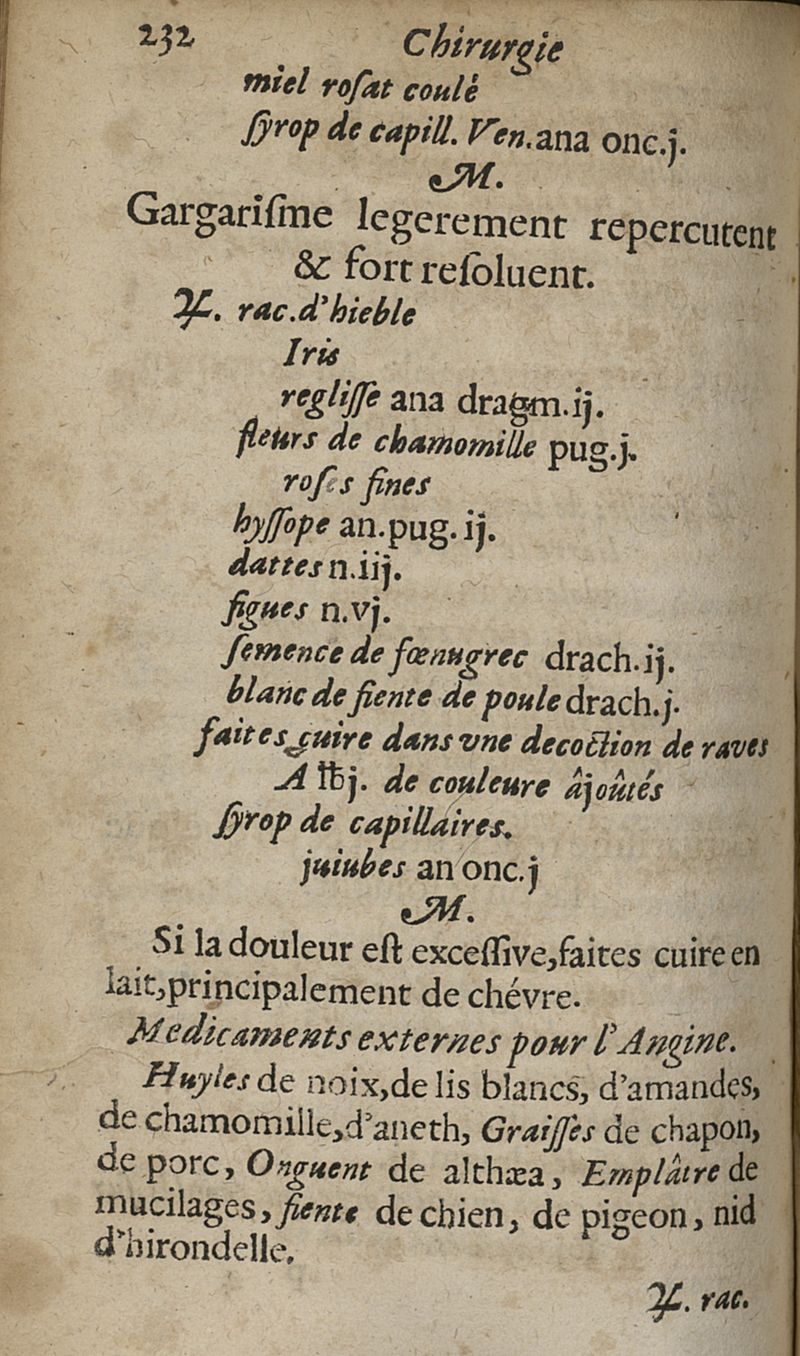 232 Chirurgie
miel roſat coulé
ſyrop de capill. Ven.ana onc.j.
M.
Gargariſme legerement repercutent
& fort reſoluent.
♃. rac.d'hieble
Iris
regliſſe ana dragm.ij.
fleurs de chamomille pug.j.
roſes fines
hyſſope an.pug.ij.
dattes n.iij.
figues n.vj.
ſemence de fœnugrec drach.ij.
blanc de fiente de poule drach.j.
faites cuire dans vne decoction de raves
A ℔j. de couleure âjoûtés
ſyrop de capillaires.
juiubes an onc.j
M.
Si la douleur eſt exceſſive,faites cuire en
lait,principalement de chévre.
Medicaments externes pour l'Angine.
Huyles de noix,de lis blancs, d'amandes,
de chamomille,d'aneth, Graiſſes de chapon,
de porc, Onguent de althæa, Emplâtre de
mucilages, fiente de chien, de pigeon, nid
d'hirondelle.
♃. rac.